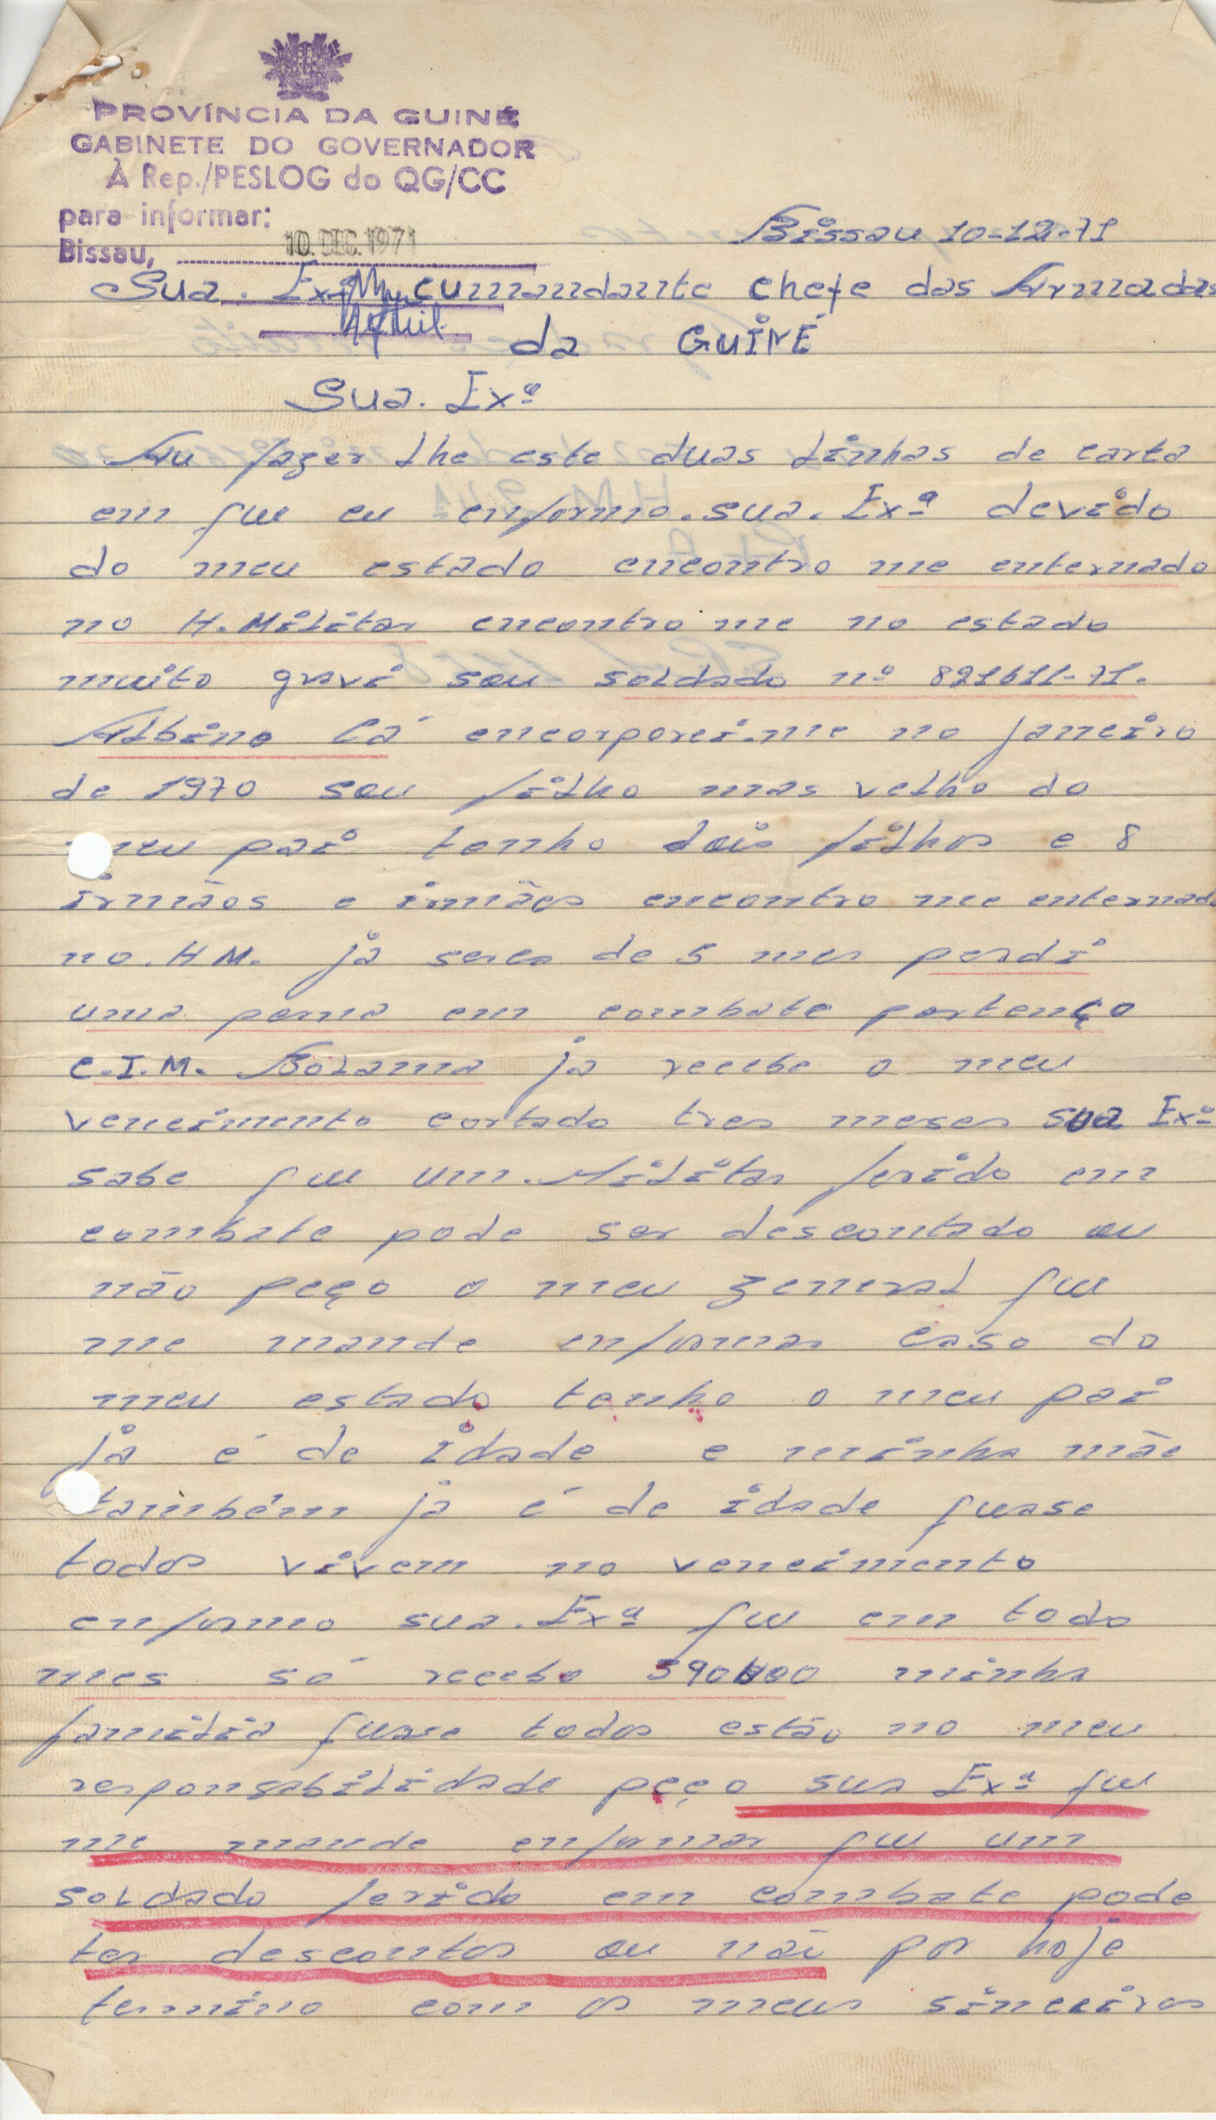 PROVÍNCIA DA GUINÉ
GABINETE DO GOVERNADOR
À Rep./PESLOG do QG/CC
para informar:
Bissau, 10. DEC. 1971
Bissau 10-12-71
Sua. Exª cumandante chefe das Armadas
da GUINÉ
Sua. Exª
Au fazer lhe este duas linhas de carta
em que eu enformo.sua.Exª devido
do meu estado encontro me enternado
no H.Militar encontro me no estado
muito gravi sou soldado nº 821611-71.
Albino Cá encorporei.me no janeiro
de 1970 sou filho mas velho do
meu pai tenho dois filhos e 8
irmãos e irmães encontro me enternado
no.HM. já serca de 5 mes perdi
uma perna em combate pertenço
C.I.M. Bolama ja recebe o meu
vencimento cortado tres meses sua Exª
sabe que um.Militar ferido em
combate pode ser descontado ou
não peço o meu general que
me mande enformar caso do
meu estado tenho o meu pai
já é de idade e minha mãe
também já é de idade quase
todos vivem no vencimento
enformo sua.Exª que em todo
mes só recebo 590$00 minha
familia quase todos estão no meu
responsabilidade peço sua Exª que
me mande enformar que um
soldado ferido em combate pode
ter descontos ou não por hoje
termino com os meus sinceiros